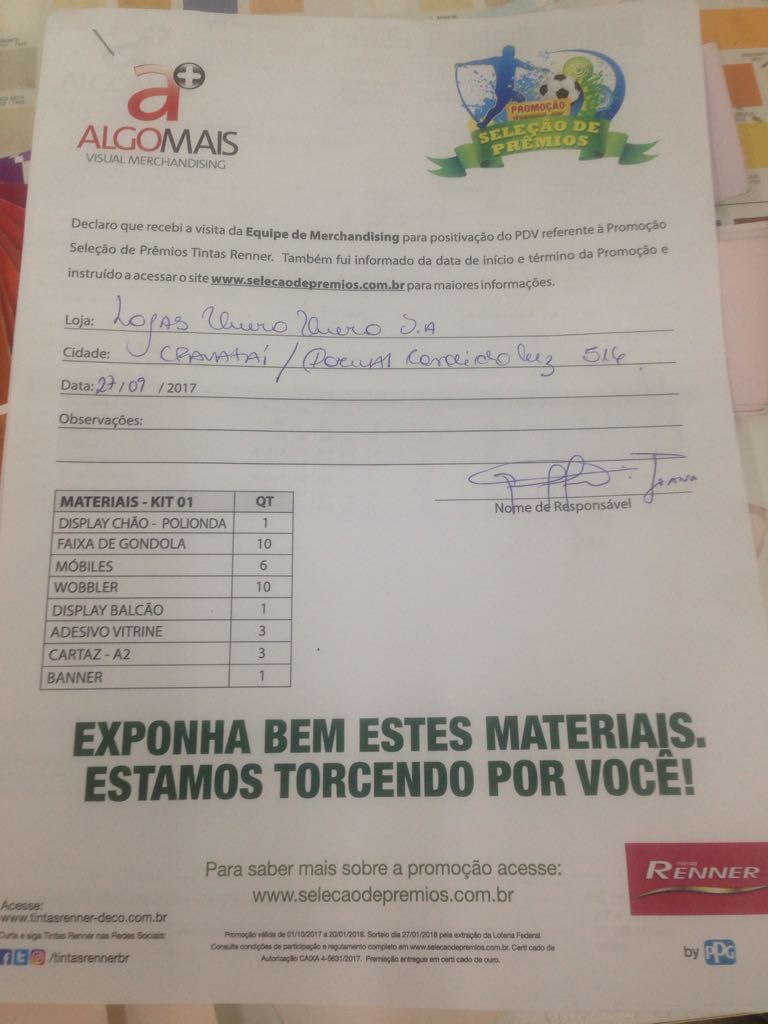 a+
ALGOMAIS
VISUAL MERCHANDISING
PROMOÇÃO
SELEÇÃO DE
PRÊMIOS
Declaro que recebi a visita da Equipe de Merchandising para positivação do PDV referente à Promoção
Seleção de Prêmios Tintas Renner. Também fui informado da data de início e término da Promoção e
instruído a acessar o site www.selecaodepremios.com.br para maiores informações.
Loja: Lojas S.A
Cidade: 514
Data: 27/09 / 2017
Observações:
Nome de Responsável
MATERIAIS - KIT 01 QT
DISPLAY CHÃO - POLIONDA 1
FAIXA DE GONDOLA 10
MÓBILES 6
WOBBLER 10
DISPLAY BALCÃO 1
ADESIVO VITRINE 3
CARTAZ - A2 3
BANNER 1
EXPONHA BEM ESTES MATERIAIS.
ESTAMOS TORCENDO POR VOCÊ!
Para saber mais sobre a promoção acesse:
www.selecaodepremios.com.br
RENNER
by PPG
Acesse:
www.tintasrenner-deco.com.br
Curta e siga Tintas Renner nas Redes Sociais:
/tintasrennerbr
Promoção válida de 01/10/2017 a 20/01/2018. Sorteio dia 27/01/2018 pela extração da Loteria Federal.
Consulte condições de participação e regulamento completo em www.selecaodepremios.com.br. Certi cado de
Autorização CAIXA 4-5631/2017. Premiação entregue em certi cado de ouro.